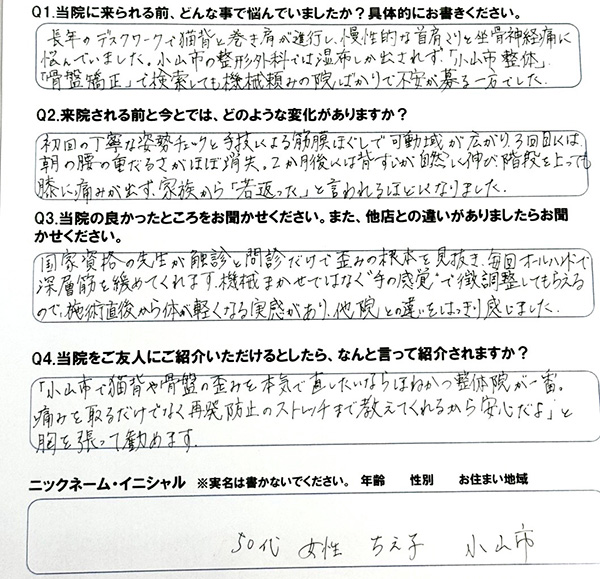 Q1.当院に来られる前、どんな事で悩んでいましたか？具体的にお書きください。
長年のデスクワークで猫背と巻き肩が進行し、慢性的な首肩こりと坐骨神経痛に
悩んでいました。小山市の整形外科では湿布しか出されず、「小山市 整体」
「骨盤矯正」で検索しても機械頼みの院ばかりで不安が募る一方でした。
Q2.来院される前と今とでは、どのような変化がありますか？
初回の丁寧な姿勢チェックと手技による筋膜ほぐしで可動域が広がり、3回目には
朝の腰の重だるさがほぼ消失。2か月後には背すじが自然に伸び、階段を上っても
膝に痛みが出ず、家族から「若返った」と言われるほどになりました。
Q3.当院の良かったところをお聞かせください。また、他店との違いがありましたらお聞
かせください。
国家資格の先生が触診と問診だけで歪みの根本を見抜き、毎回オールハンドで
深層筋を緩めてくれます。機械まかせではなく“手の感覚”で微調整してもらえる
ので、施術直後から体が軽くなる実感があり、他院との違いをはっきり感じました。
Q4.当院をご友人にご紹介いただけるとしたら、なんと言って紹介されますか？
「小山市で猫背や骨盤の歪みを本気で直したいならほねかつ整体院が一番。
痛みを取るだけでなく再発防止のストレッチまで教えてくれるから安心だよ」と
胸を張って勧めます。
ニックネーム・イニシャル ※実名は書かないでください。 年齢 性別 お住まい地域
50代 女性 ちえ子 小山市